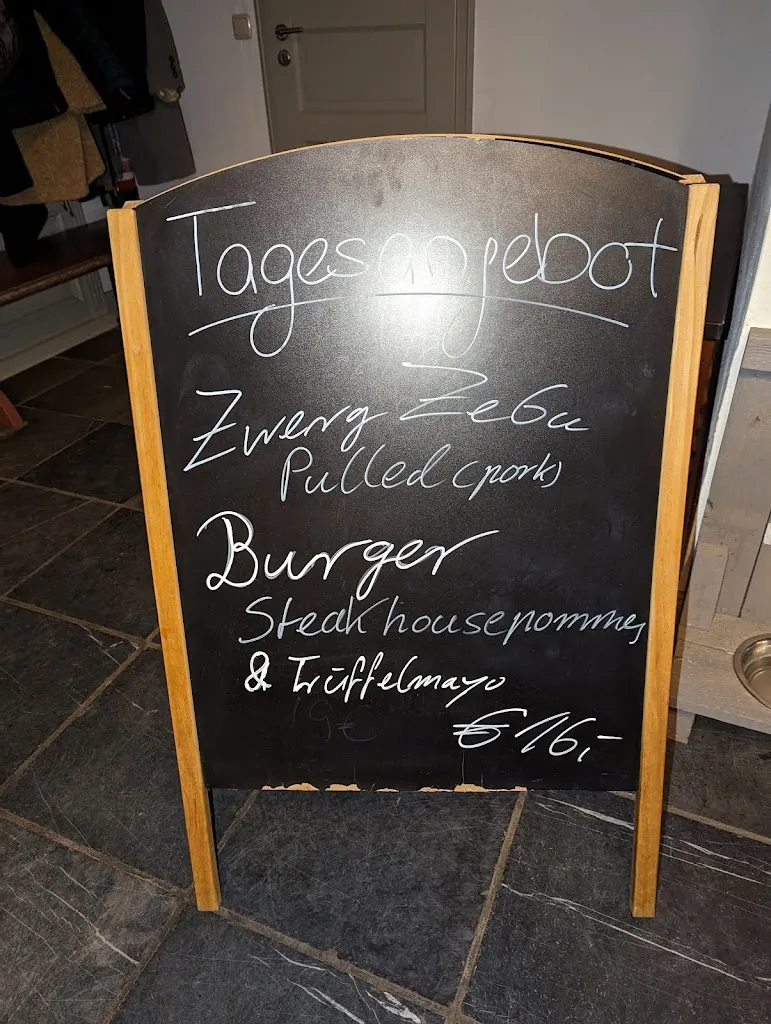 Tagesangebot
Zwerg Zebu
Pulled (pork)
Burger
Steakhousepommes
& Trüffelmayo
€ 16,-